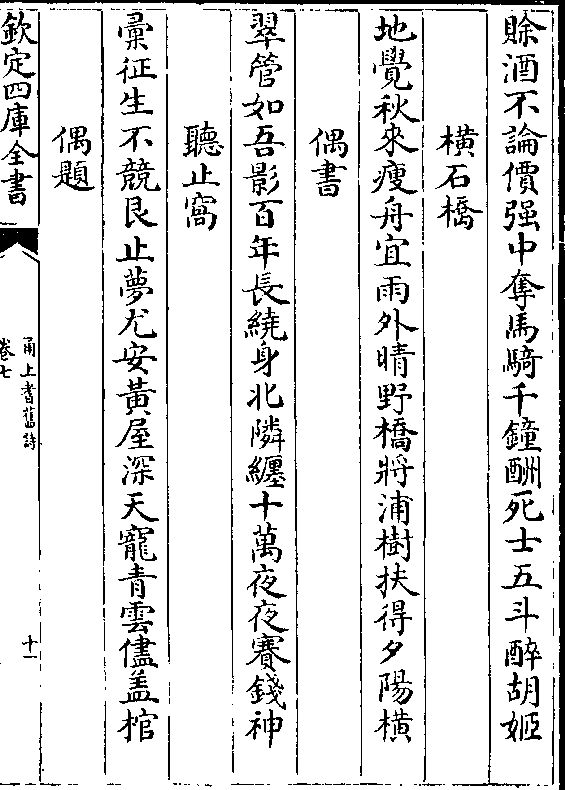 賖酒不論價强中奪馬騎千鐘酬死士五斗醉胡姬
橫石橋
地覺秋來瘦舟宜雨外晴野橋將浦樹扶得夕陽橫
偶書
翠管如吾影百年長繞身北隣纏十萬夜夜賽錢神
聽止窩
彚征生不競艮止夢尤安黃屋深天寵青雲儘盖棺
偶題
欽定四庫全書
甬上耆舊詩
卷七
十一